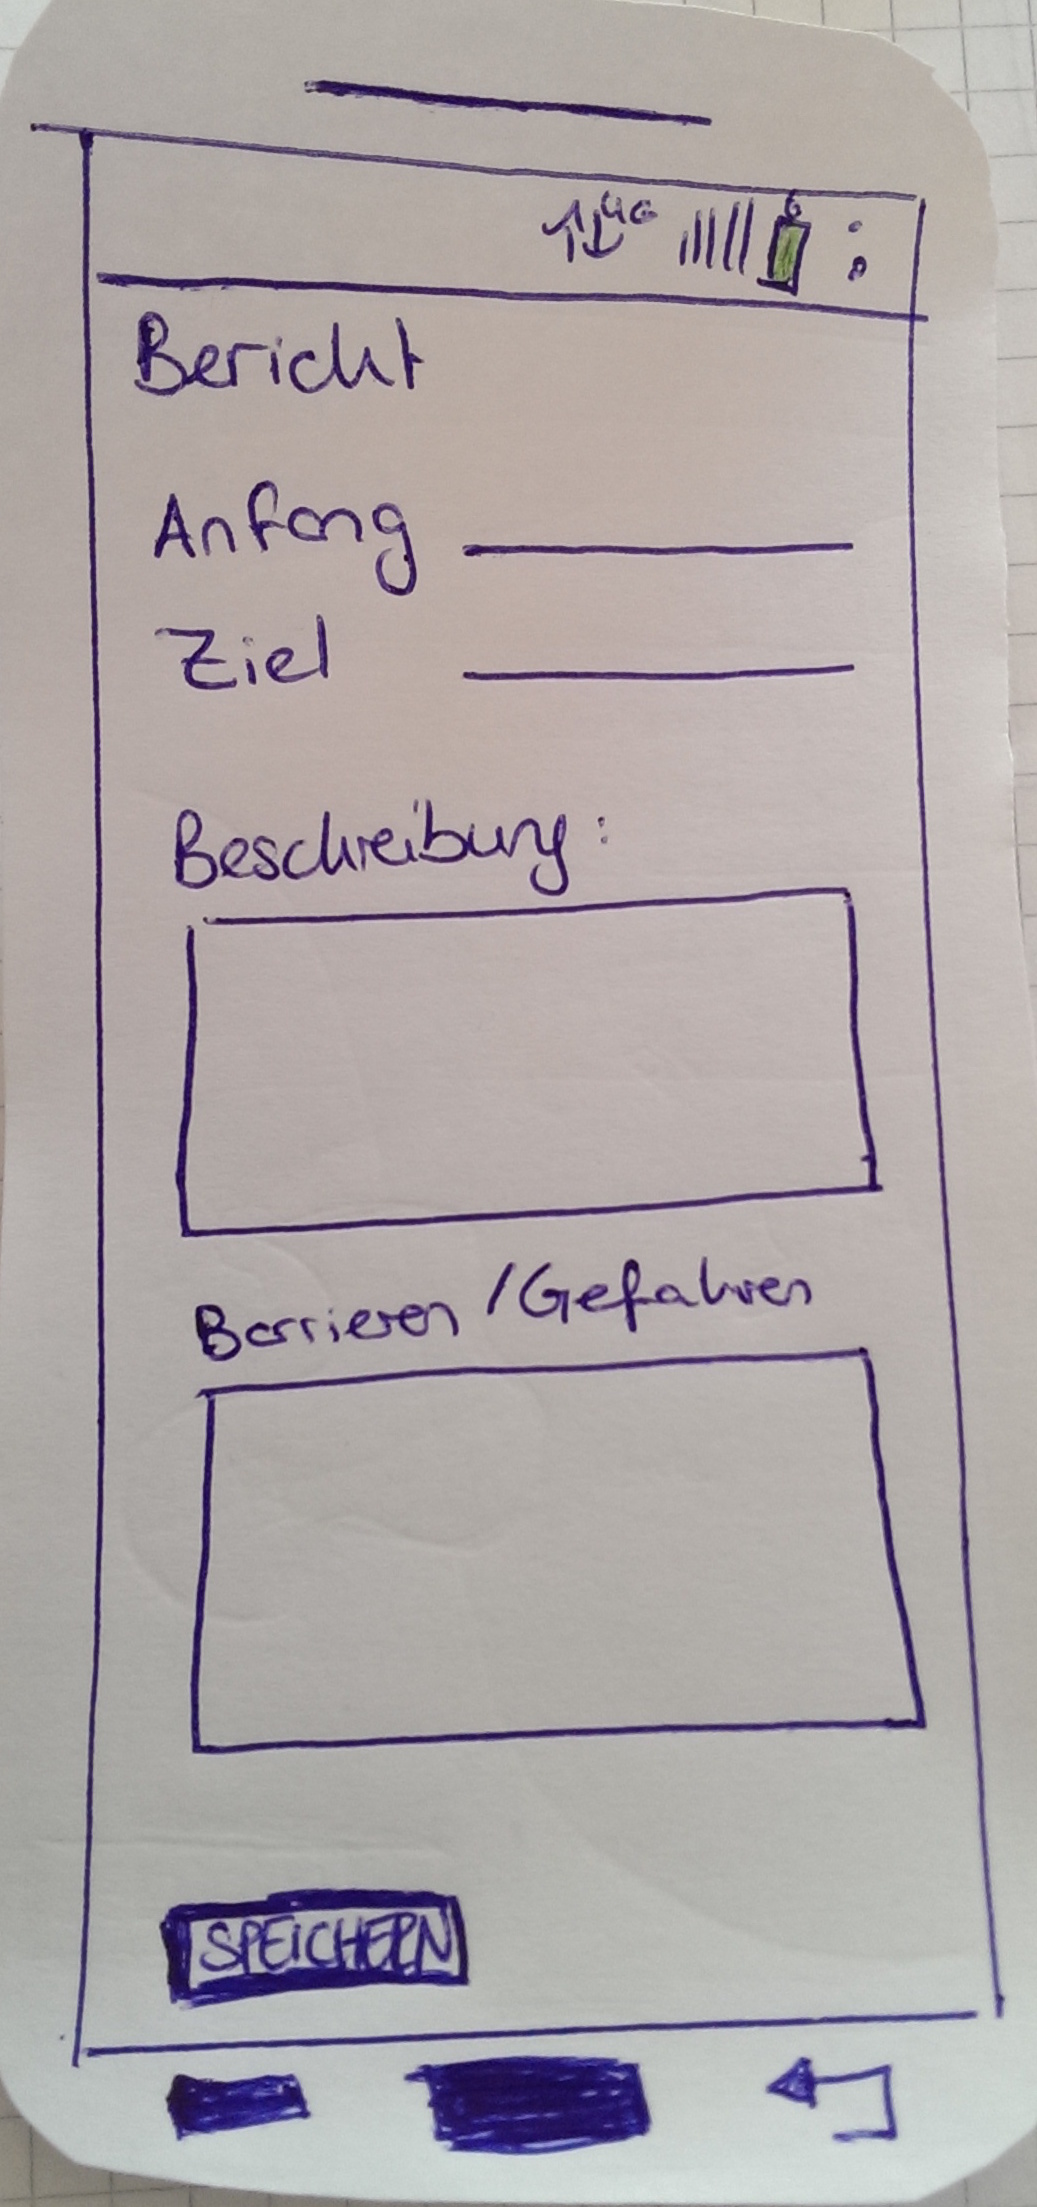 4G
Bericht
Anfang
Ziel
Beschreibung:
Barrieren / Gefahren
SPEICHERN